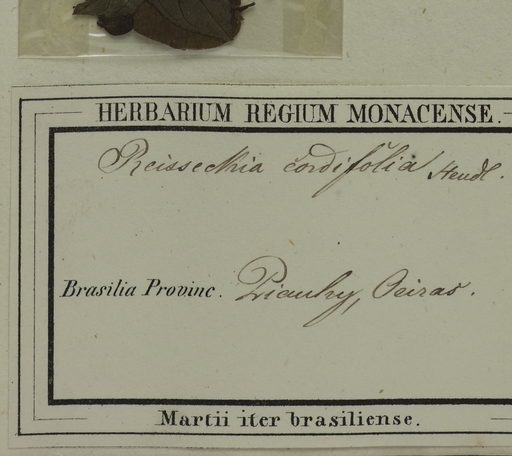 HERBARIUM REGIUM MONACENSE.
Reissekia cordifolia Steudl.
Brasilia Provinc. Piauhy, Oeiras.
Martii iter brasiliense.